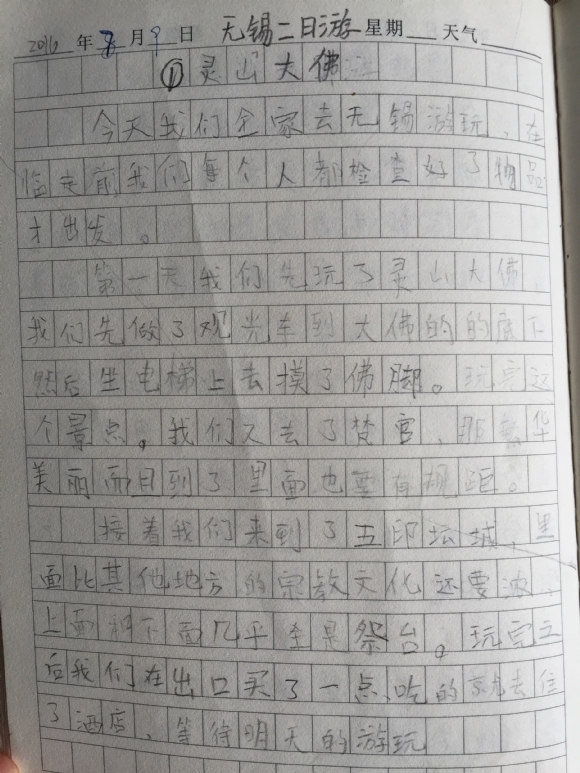 2016年8月9日 无锡二日游 星期 天气
①灵山大佛
今天我们全家去无锡游玩,在
临走前我们每个人都检查好了物品
才出发。
第一天我们先玩了灵山大佛,
我们先做了观光车到大佛的的底下
然后坐电梯上去摸了佛脚。玩完这
个景点。我们又去了梵宫,那豪华
美丽而且到了里面也要有规距。
接着我们来到了五印坛城,里
面比其他地方的宗教文化还要浓,
上面和下面几乎全是祭台。玩完之
后我们在出口买了一点吃的就去住
了酒店,等待明天的游玩